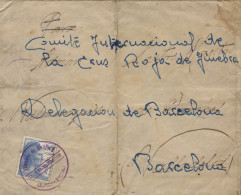 Comité Internacional de
la Cruz Roja de Ginebra
Delegación de Barcelona
Barcelona